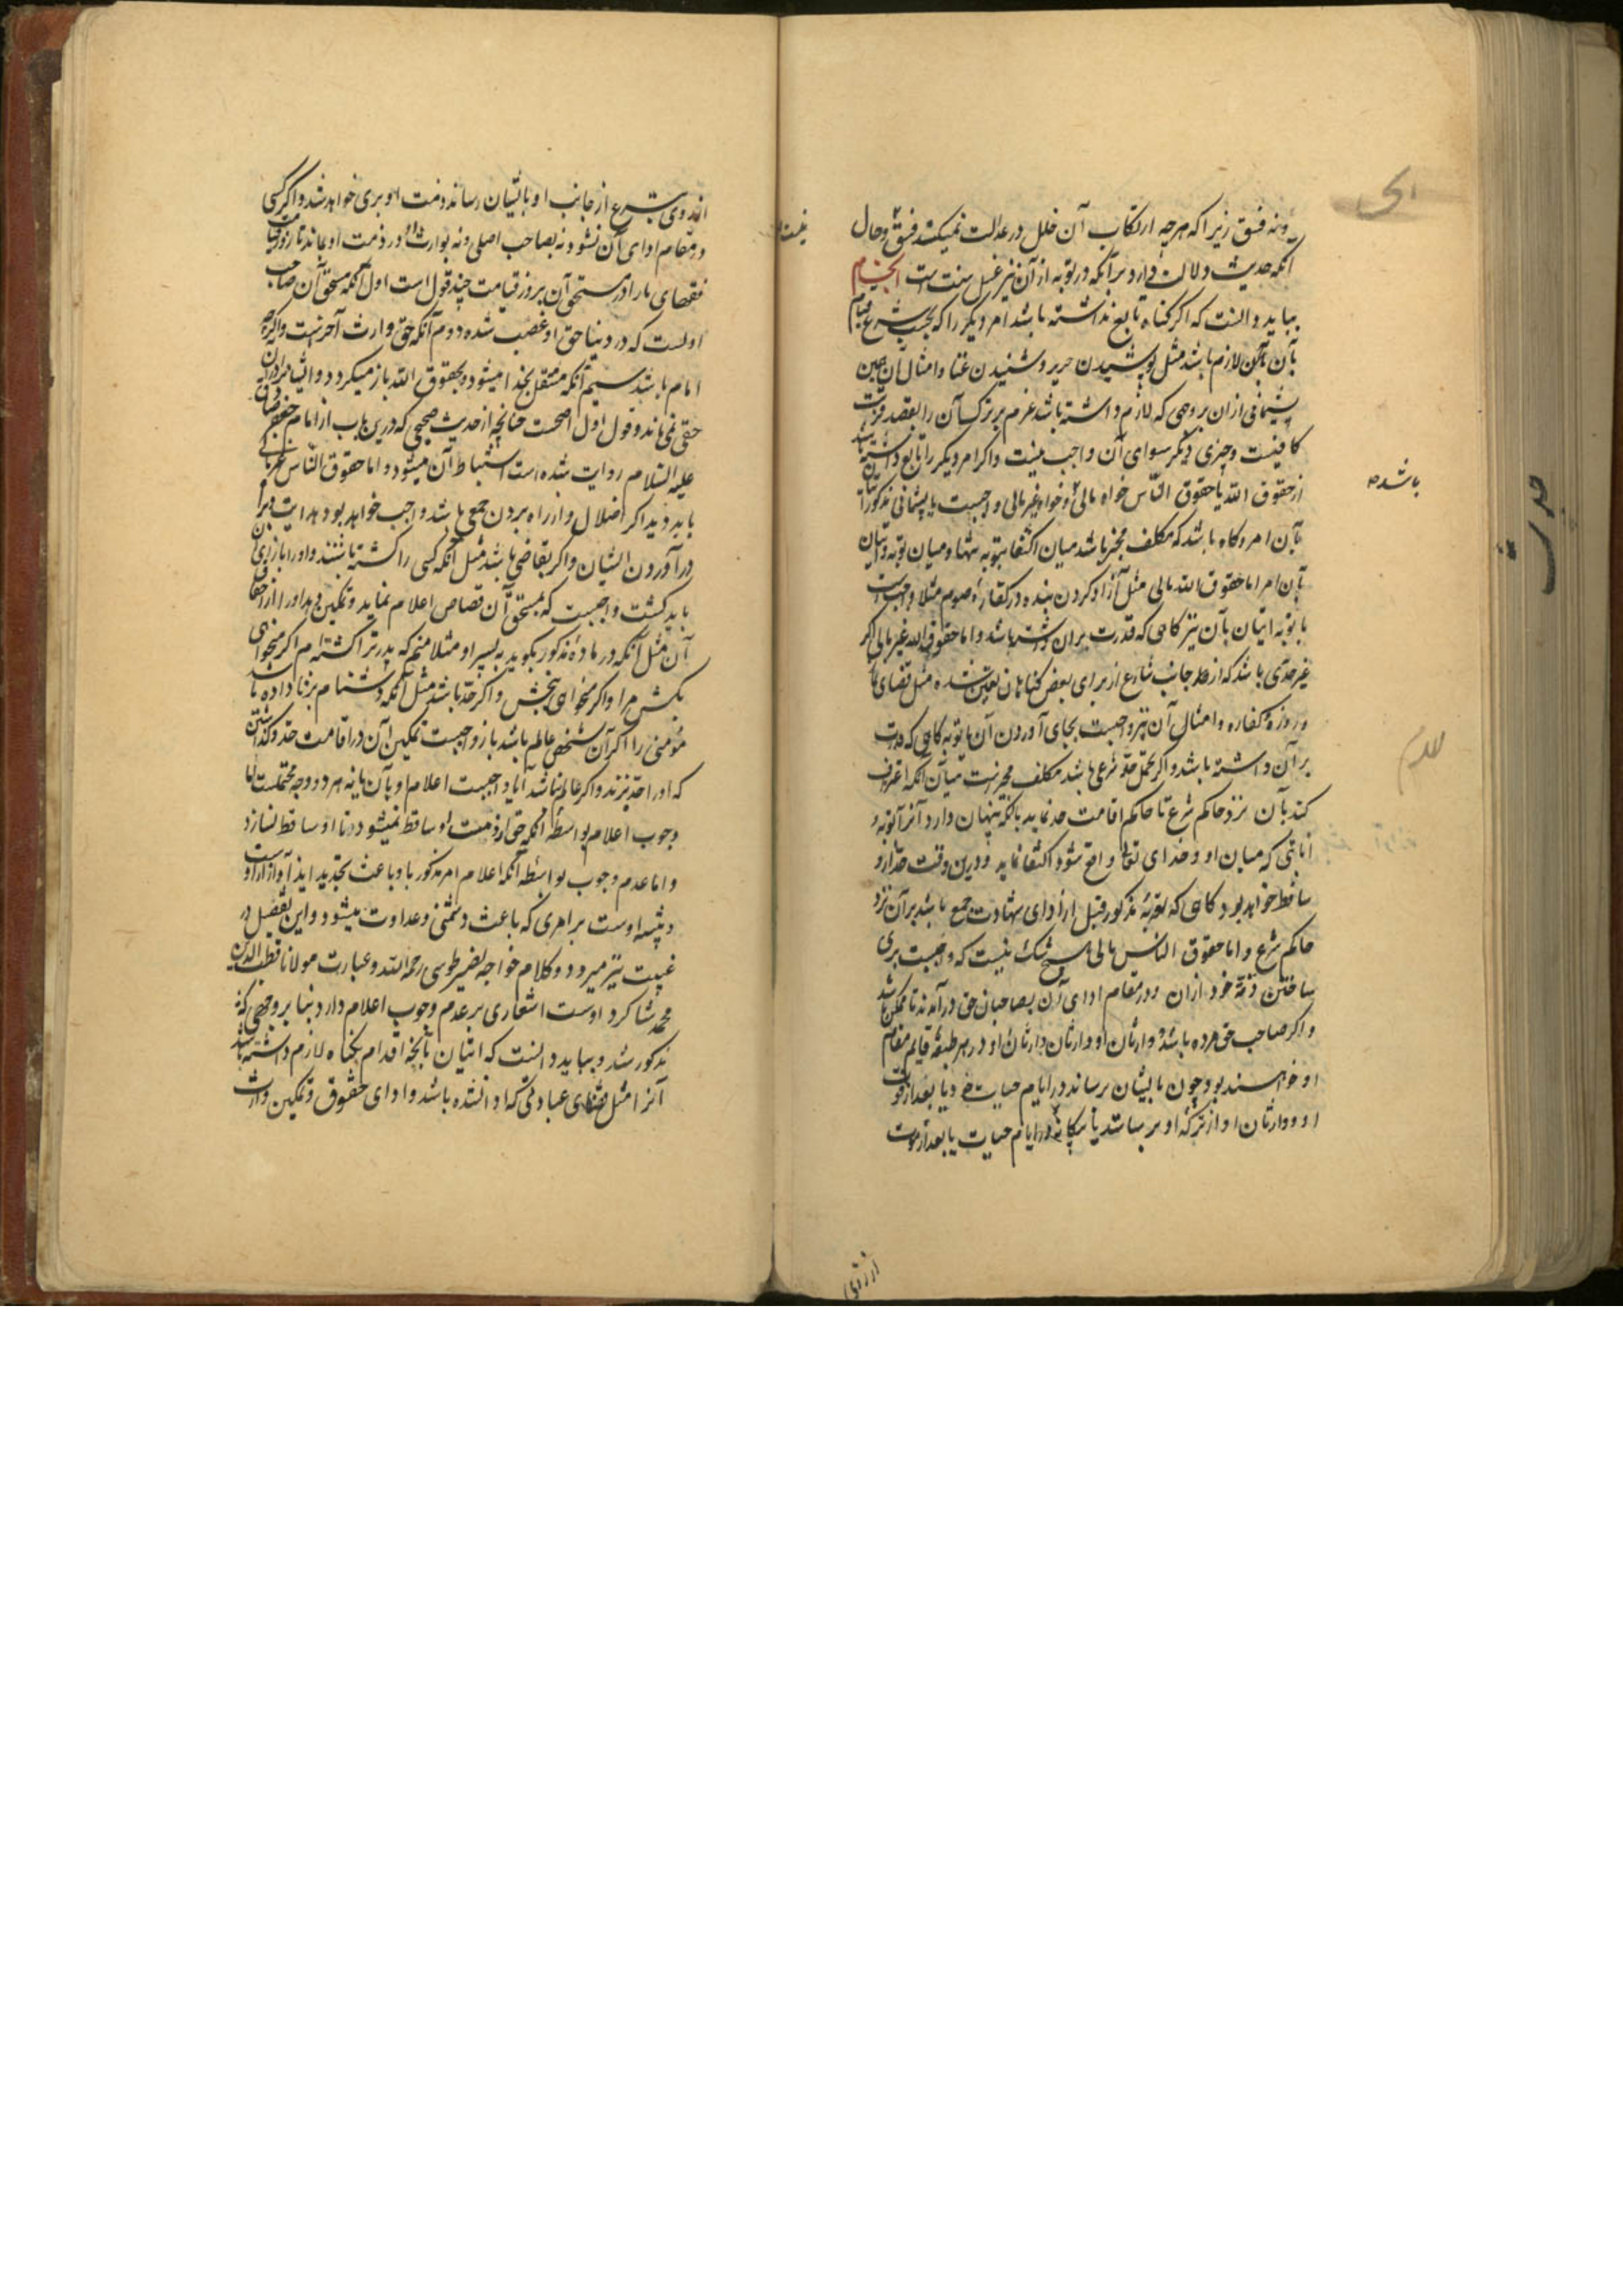 ونه فسق زیرا که هرچه ارتکاب آن خلل در عدالت نمیکند فسق و حال
آنکه حدیث دلالت دارد برآنکه در توبه از آن نیز غسل سنت است
بباید دانست که اگر گناه تابع نداشته باشد امر دیگر را که بحسب شرع قیام
بآن لازم باشد مثل پوشیدن حریر و شنیدن غنا و امثال آن همین
پشیمانی ازان بروجهی که لازم داشته باشد عزم بر ترک آن را بقصد قربت
کافیست و چیزی دیگر سوای آن واجب نیست و اگر امر دیگر را تابع داشته باشد
از حقوق الله یا حقوق الناس خواه مالی و خواه غیر مالی واجبست با پشیمانی مذکور اتیان
بآن امر و گاه باشد که مکلف مخیر باشد میان اکتفا بتوبه تنها و میان توبه و اتیان
بآن امر اما حقوق الله مالی مثل آزاد کردن بنده در کفاره صوم مثلا واجبست
با توبه اتیان بآن نیز گاهی که قدرت بران داشته باشد و اما حقوق الله غیر مالی اگر
غیر حدی باشد که از جانب شارع از برای بعض گناهان تعیین شده مثل قضای نماز
و روزه و کفاره و امثال آن نیز واجبست بجای آوردن آن با توبه گاهی که قدرت
بر آن داشته باشد و اگر حد شرعی باشد مکلف مخیرست میان آنکه اعتراف
کند بآن نزد حاکم شرع تا حاکم اقامت حد نماید یا آنکه پنهان دارد آنرا و بتوبه و
انابتی که میان او و خدای تعالی واقع شود اکتفا نماید و درین وقت حد ازو
ساقط خواهد بود گاهی که توبه مذکور قبل از ادای شهادت جمع باشد بر آن نزد
حاکم شرع و اما حقوق الناس مالی هیچ شک نیست که واجبست بری
ساختن ذمه خود ازان و در مقام ادای آن بصاحبان حق در آمدن تا ممکن باشد
و اگر صاحب حق مرده باشد وارثان او و وارثان وارثان او در هر طبقه قایم مقام
او خواهند بود و چون بایشان برساند در ایام حیات خود یا بعد از فوت
او وارثان او از ترکه او برسانند یا بیگانه در ایام حیات یا بعد از موت
باشد
نیست
از روی
از روی شرع از جانب او بایشان رساند ذمت او بری خواهد شد و اگر کسی
در مقام ادای آن نشود نه بصاحب اصلی و نه بوارث او و در ذمت او بماند تا روز قیامت
فقهای ما را در مستحق آن بروز قیامت چند قول است اول آنکه مستحق آن صاحب
اولست که در دنیا حق او غصب شده دوم آنکه حق وارث آخرست و اگرچه
امام باشد سیم آنکه منتقل بخدا میشود و بحقوق الله باز میگردد و ایشانرا دران
حقی نمی ماند و قول اول اصحست چنانچه از حدیث صحیحی که درین باب از امام جعفر صادق
علیه السلام روایت شده است استنباط آن میشود و اما حقوق الناس غیر مالی
باید دید اگر اضلال و از راه بردن جمعی باشد واجب خواهد بود هدایت و براه
در آوردن ایشان و اگر تقاضی باشد مثل آنکه کسی را کشته باشند و او را بازای آن
باید کشت واجبست که بمستحق آن قصاص اعلام نماید و تمکین دهد او را از استیفای
آن مثل آنکه در ماده مذکور بگوید به پسر او مثلا منم که پدر ترا کشته ام اگر میخواهی
بکش مرا و اگر میخواهی ببخش و اگر حد باشد مثل آنکه دشنام بزنا داده باشد
مؤمنی را اگر آن شخص عالم باشد باز واجبست تمکین آن در اقامت حد و گذاشتن
که او را حد بزند و اگر عالم نباشد آیا واجبست اعلام او بآن یا نه هر دو وجه محتملست اما
وجوب اعلام بواسطه آنکه حق از ذمت او ساقط نمیشود تا او ساقط نسازد
و اما عدم وجوب بواسطه آنکه اعلام امر مذکور باو باعث تجدید ایذا و آزار اوست
و تنبیه اوست بر امری که باعث دشمنی و عداوت میشود و این تفصیل در
غیبت نیز میرود و کلام خواجه نصیر طوسی رحمه الله و عبارت مولانا قطب الدین
محمد شاگرد اوست اشعاری بر عدم وجوب اعلام دارد بنا بر وجهی که
مذکور شد و بباید دانست که اتیان بآنچه اقدام بگناه لازم داشته باشد
آنرا مثل قضای عبادتی که ادا نشده باشد و ادای حقوق و تمکین وارث